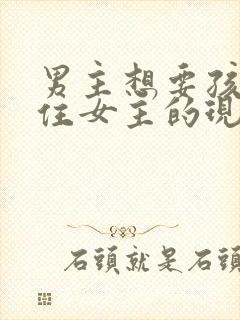 男主想要孩
住女主的現
石頭就是石頭